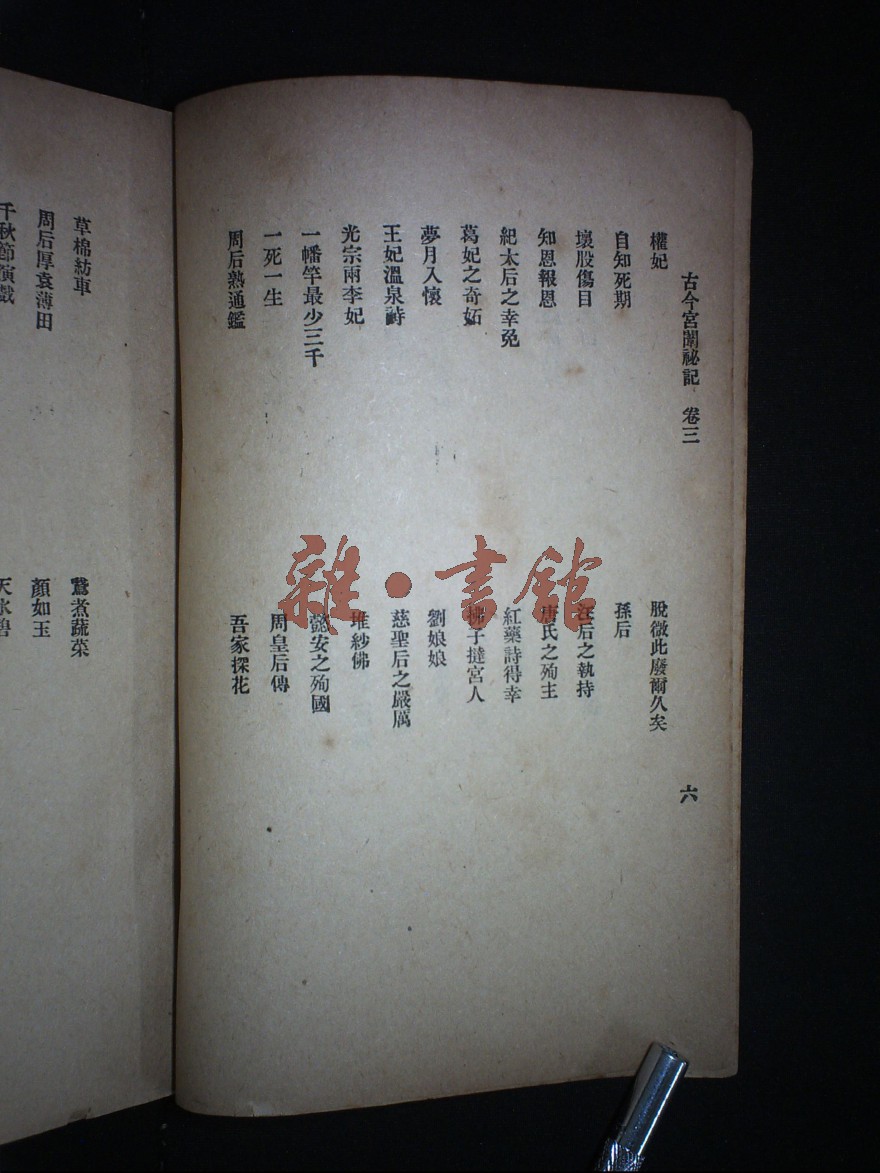 古今宮闈祕記 卷三
六
權妃
脫微此廢爾久矣
自知死期
孫后
壞股傷目
汪后之執持
知恩報恩
唐氏之殉主
紀太后之幸免
紅藥詩得幸
葛妃之奇妬
拂子撻宮人
夢月入懷
劉娘娘
王妃溫泉詩
慈聖后之嚴厲
光宗兩李妃
堆紗佛
一幡竿最少三千
懿安之殉國
一死一生
周皇后傳
周后熟通鑑
吾家探花
草棉紡車
鵞煮蔬菜
周后厚袁薄田
顏如玉
千秋節演戲
天水碧
雜·書館